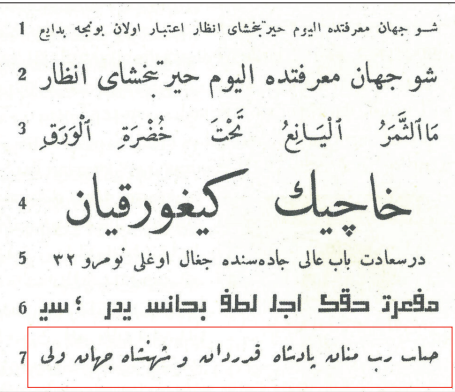 1 شو جهان معرفتده اليوم حيرتبخشای انظار اعتبار اولان بونجه بدايع
2 شو جهان معرفتده اليوم حيرتبخشای انظار
3 مَاٱلثَّمَرُ ٱلْيَانِعُ تَحْتَ خُضْرَةِ ٱلْوَرَقِ
4 خاچيك كيغورقيان
5 درسعادت باب عالی جاده‌سنده جغال اوغلی نومرو ٣٢
6 لطف
7 رب منان پادشاه قدردان و شهنشاه جهان ولی